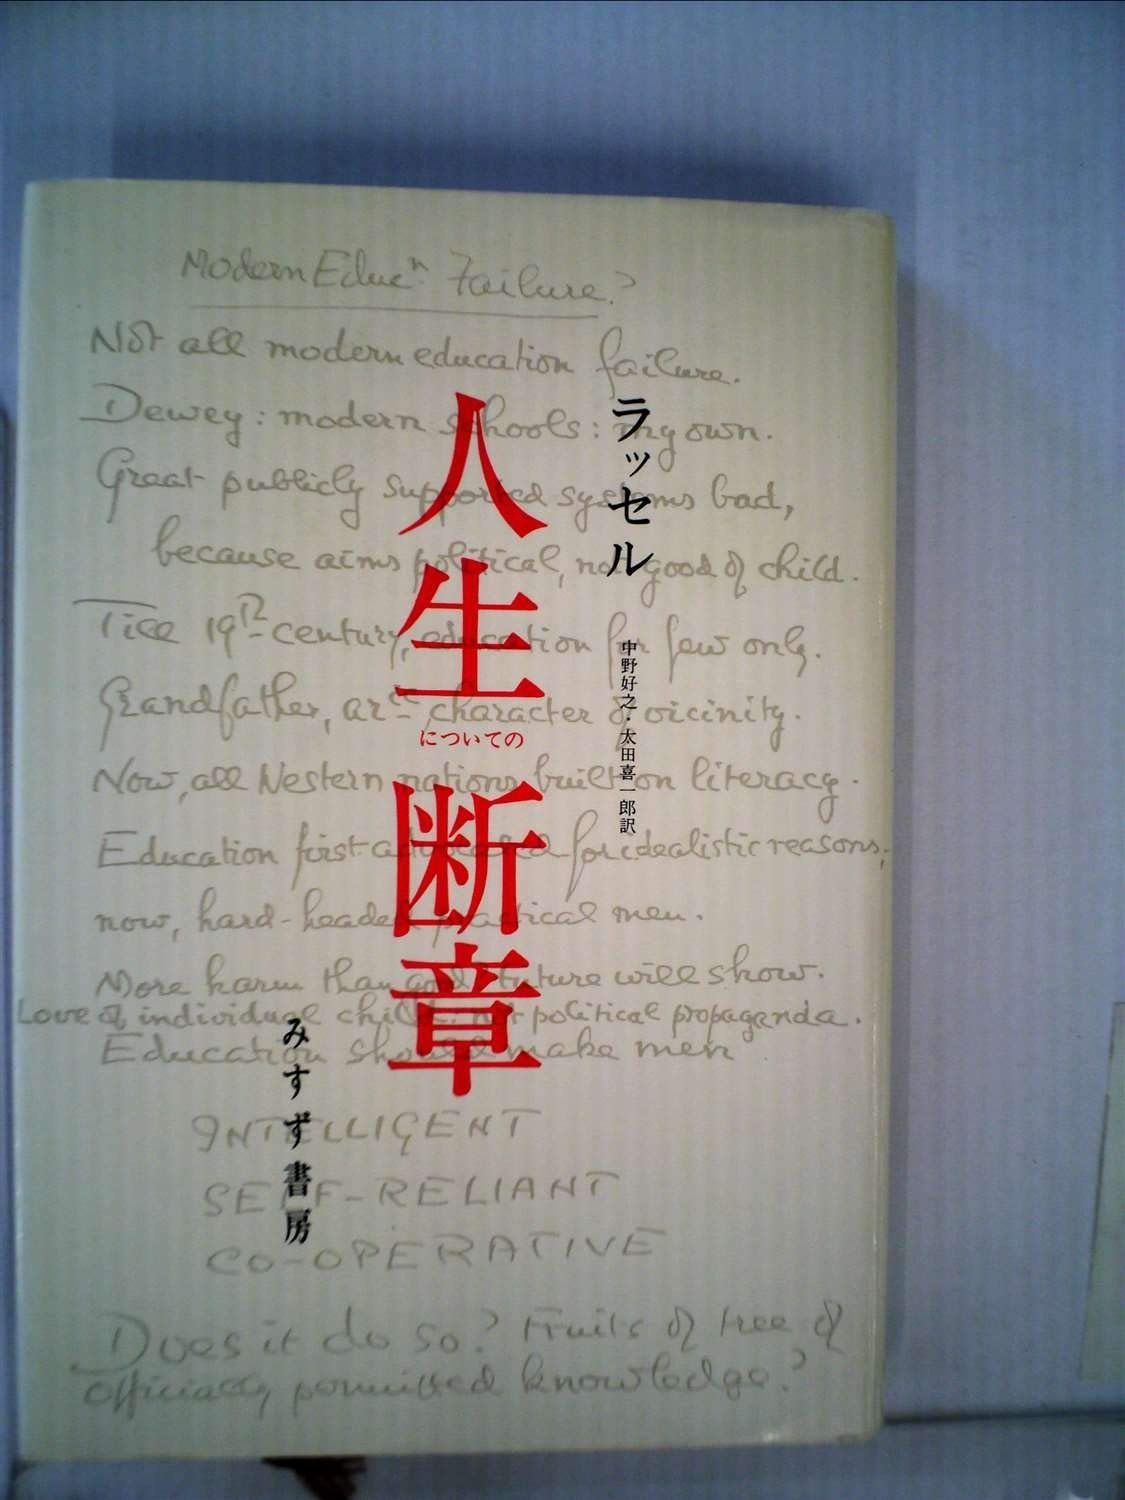 Modern Educⁿ Failure?
Not all modern education failure.
Dewey: modern schools: my own.
Great publicly supported systems bad,
because aims political, not good of child.
Till 19th century, education for few only.
Grandfather, character & vicinity.
Now, all Western nations built on literacy.
Education first advocated for idealistic reasons;
now, hard-headed practical men.
More harm than good future will show.
Love of individual child: not political propaganda.
Education should make men
INTELLIGENT
SELF-RELIANT
CO-OPERATIVE
Does it do so? Fruits of tree of
officially permitted knowledge?
ラッセル
中野好之・太田喜一郎訳
人生についての断章
みすず書房